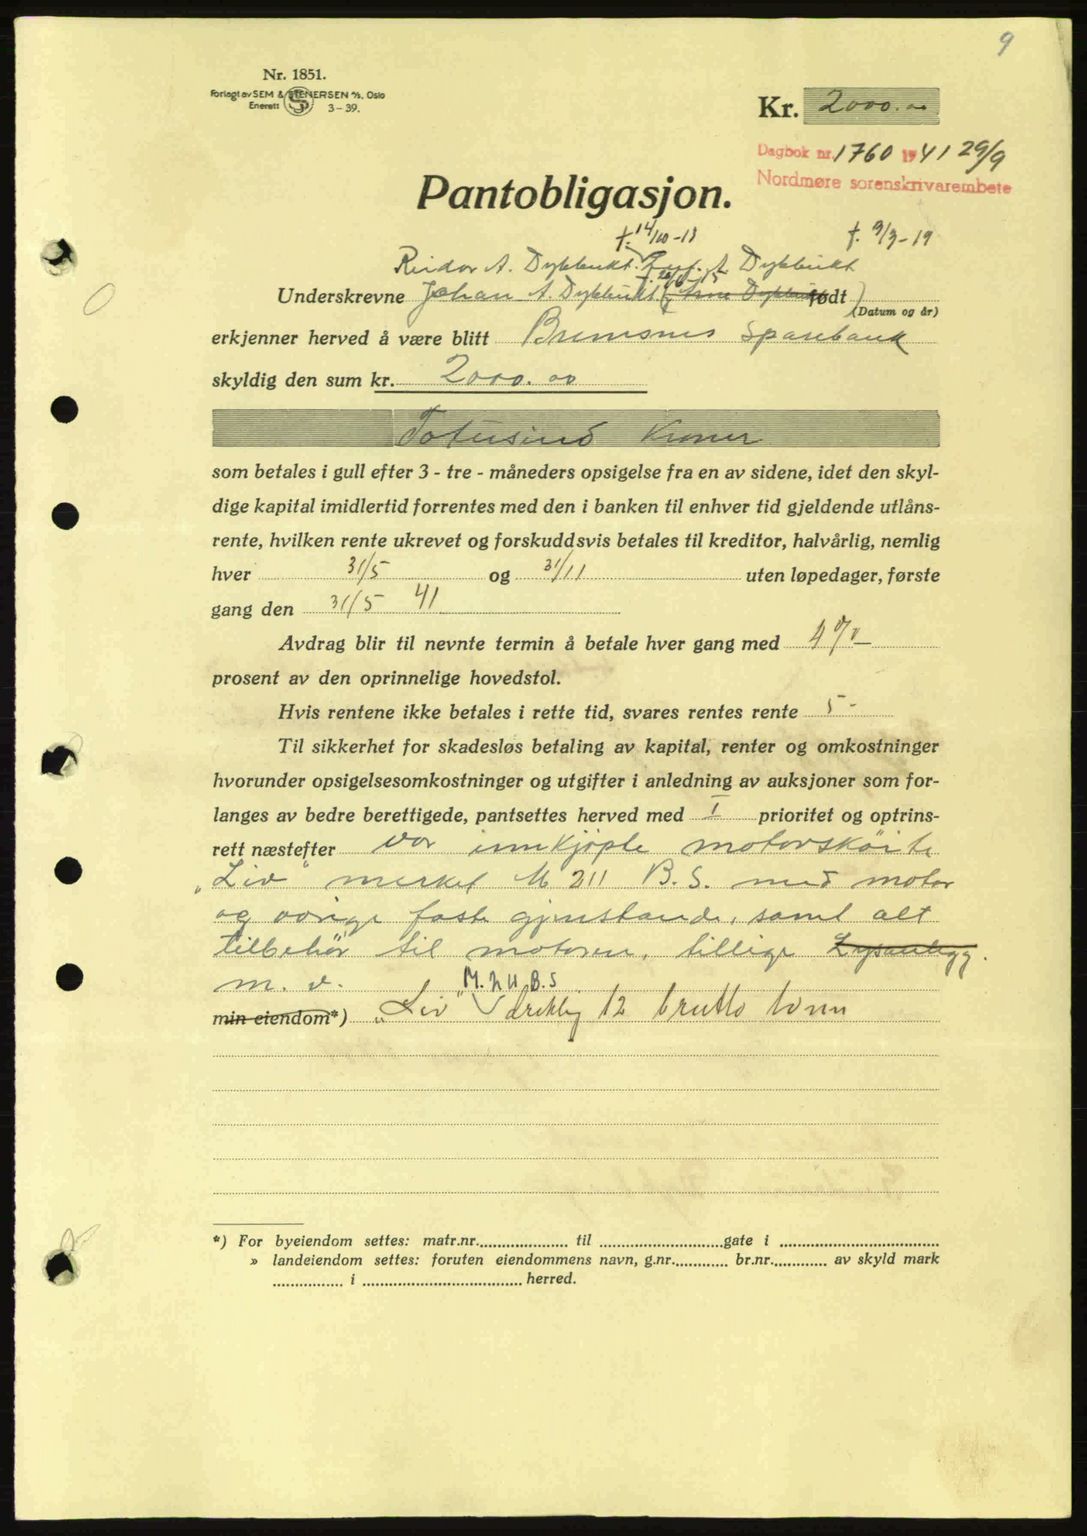 9
Nr. 1851.
Forlagt av SEM & STENERSEN A/S. Oslo
Enerett 3-39.
Kr. 2000.00
Dagbok nr. 1760 1941 29/9
Nordmøre sorenskrivarembete
Pantobligasjon.
f. 14/10-13 f. 9/3-19
Reidar A. Dybbukt. A Dybbukt
Underskrevne Johan A. Dybbukt (Arne Dybbukt født)
(Datum og år)
erkjenner herved å være blitt Bremsnes Sparebank
skyldig den sum kr. 2000.00
Totusind Kroner
som betales i gull efter 3 - tre - måneders opsigelse fra en av sidene, idet den skyl-
dige kapital imidlertid forrentes med den i banken til enhver tid gjeldende utlåns-
rente, hvilken rente ukrevet og forskuddsvis betales til kreditor, halvårlig, nemlig
hver 31/5 og 31/11 uten løpedager, første
gang den 31/5 41
Avdrag blir til nevnte termin å betale hver gang med 4 %
prosent av den oprinnelige hovedstol.
Hvis rentene ikke betales i rette tid, svares rentes rente 5-
Til sikkerhet for skadesløs betaling av kapital, renter og omkostninger
hvorunder opsigelsesomkostninger og utgifter i anledning av auksjoner som for-
langes av bedre berettigede, pantsettes herved med I prioritet og optrins-
rett næstefter vor innkjøpte motorskøite
"Liv" merket M 211 B.S. med motor
og øvrige faste gjenstande, samt alt
tilbehør til motoren, tillige Lysanlegg.
m. v. M. 211 B.S
min eiendom*) "Liv" drektig 12 brutto tonn
*) For byeiendom settes: matr.nr. til gate i
» landeiendom settes: foruten eiendommens navn, g.nr. br.nr. av skyld mark
i herred.